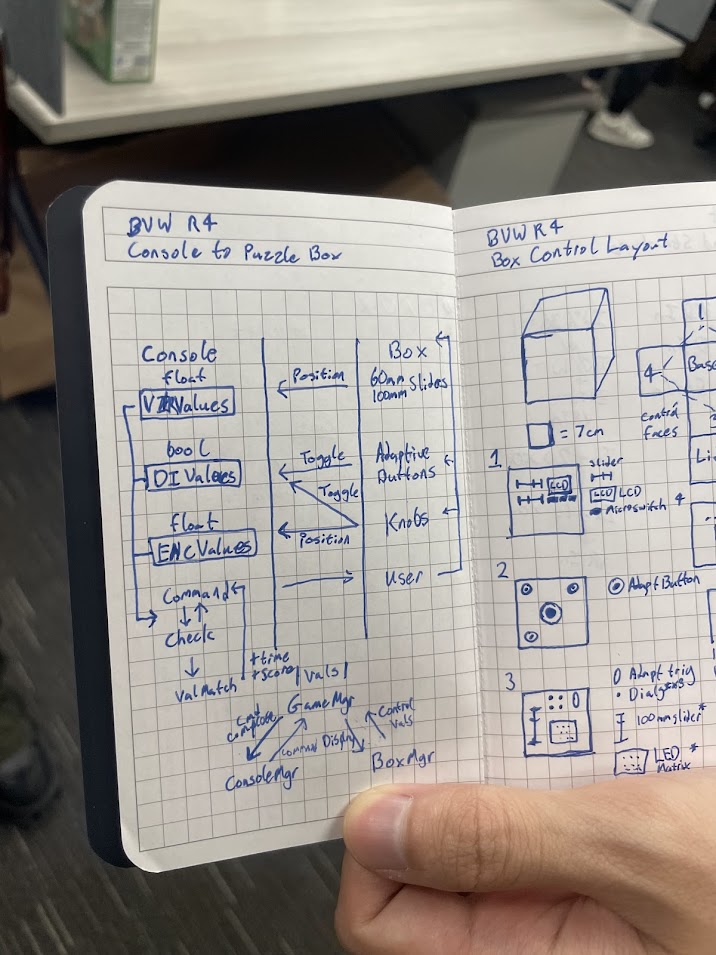 BVW R4
Console to Puzzle Box
Console
float
Values
bool
DI Values
float
ENC Values
Command
Check
ValMatch
+time
+score
|Vals|
Position
Toggle
Toggle
Position
Box
60mm Sliders
100mm
Adaptive
Buttons
Knobs
User
GameMgr
Cmd
Complete
Command
Display
Control
Vals
ConsoleMgr
BoxMgr
BVW R4
Box Control Layout
= 7cm
1
4
Base
Control
faces
1
LCD
Slider
LCD LCD
Microswitch 4
2
Adapt Button
3
Adapt trig
100mm slider*
LED *
Matrix